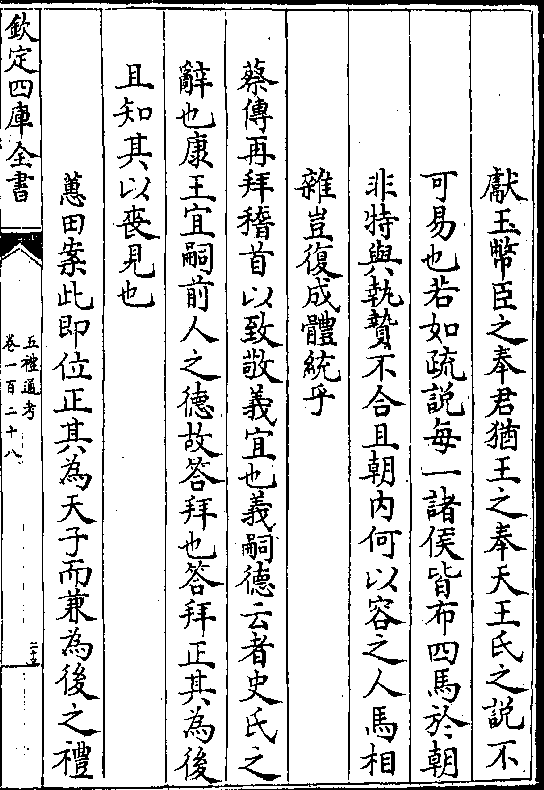 獻玉幣臣之奉君猶王之奉天王氏之説不
可易也若如疏説每一諸侯皆布四馬於朝
非特與執贄不合且朝内何以容之人馬相
雜豈復成體統乎
蔡傳再拜稽首以致敬義宜也義嗣德云者史氏之
辭也康王宜嗣前人之德故答拜也答拜正其為後
且知其以喪見也
蕙田案此即位正其為天子而兼為後之禮
欽定四庫全書
五禮通考
卷一百二十八